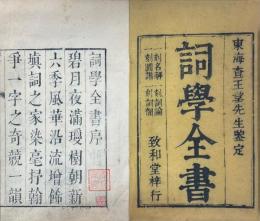 東海查王望先生鑒定
詞學全書
致和堂梓行
詞學全書序
碧月夜滿瓊樹朝新
六季風華沿流增飾
塡詞之家染毫抒翰
爭一字之奇競一韻